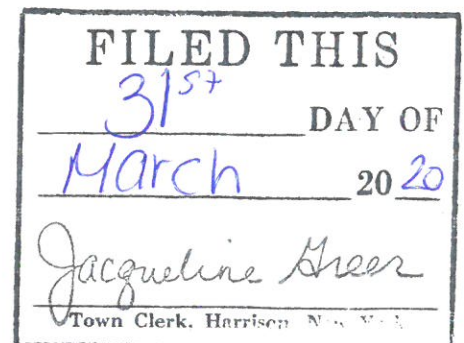 FILED THIS
31st DAY OF
March 2020
Jacqueline Greer
Town Clerk, Harrison New York